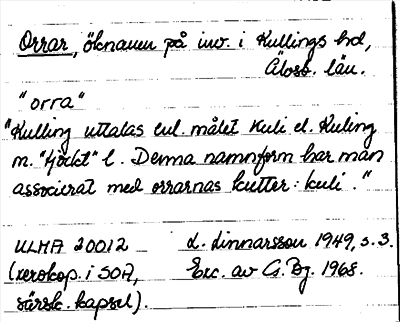 Orrar, öknamn på inv. i Kullings hd,
Älvsb. län.
"orra"
"Kulling uttalas enl. målet Kuli el. Kuling
m. "tjöckt" l. Denna namnform har man
associerat med orrarnas kutter: kuli."
ULMA 20012 L. Linnarsson 1949, s. 3.
(xerokop. i SOA, Exc. av G. Bg. 1968.
särsk. kapsel).